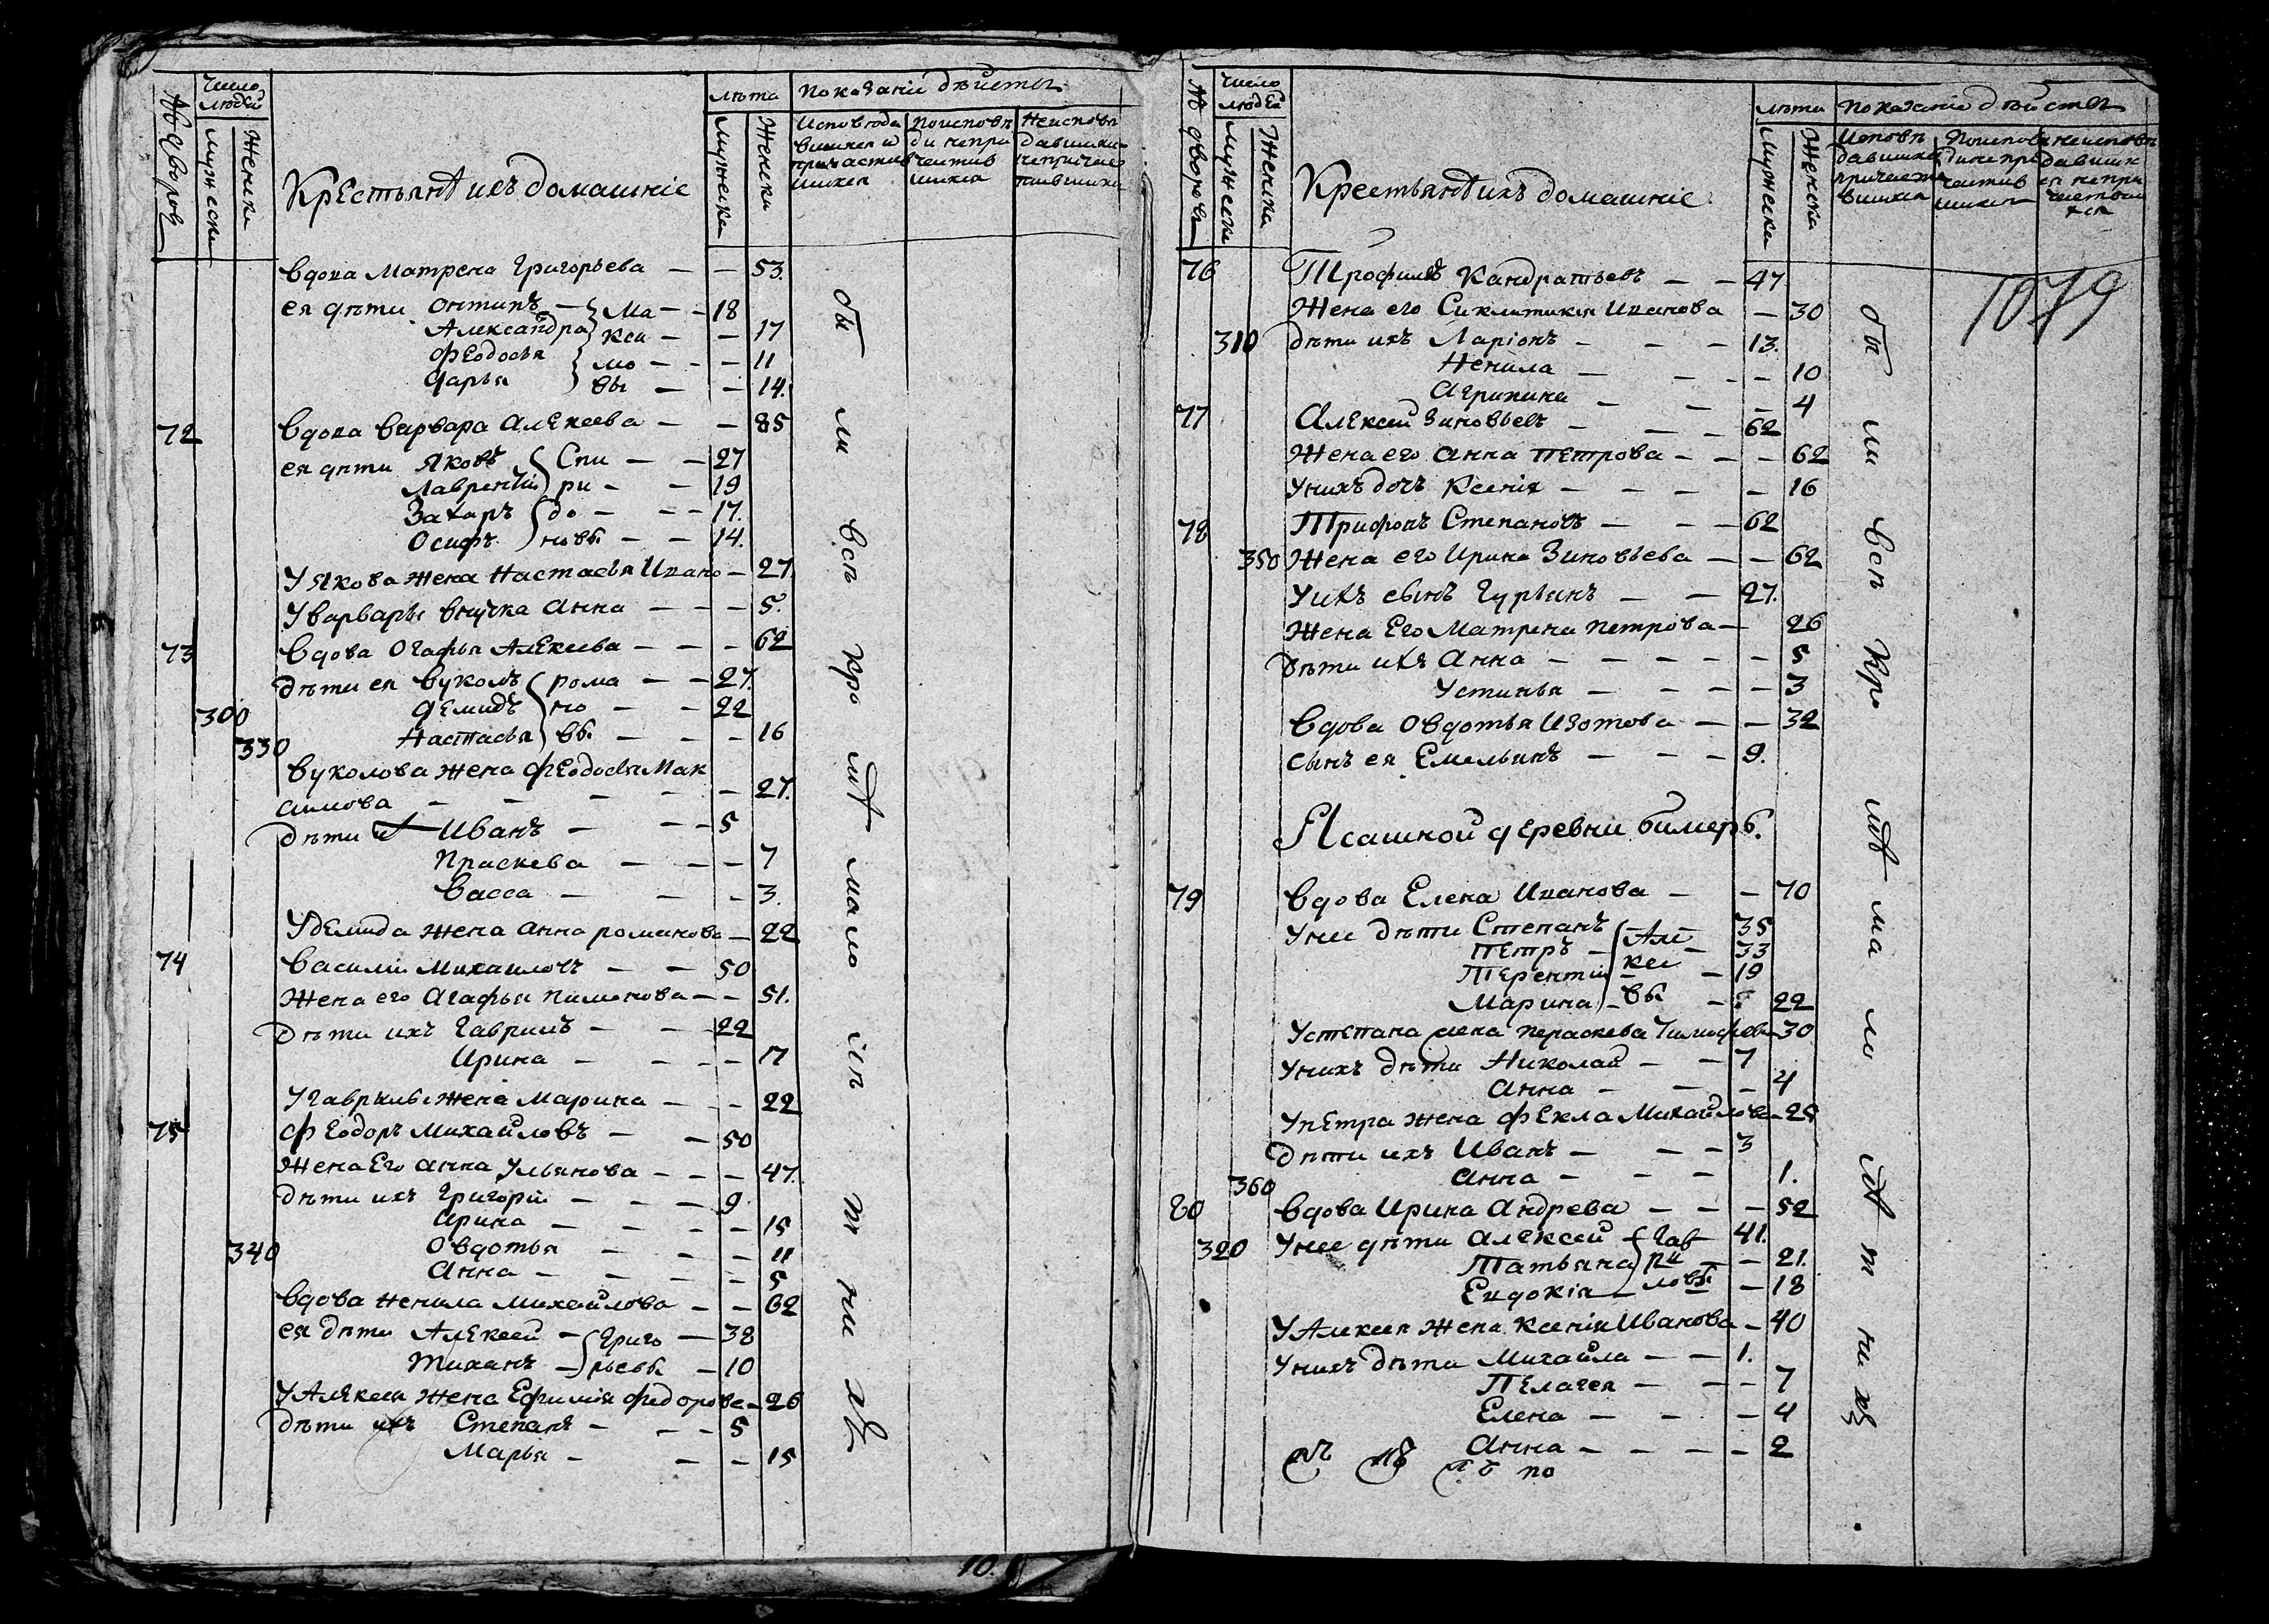 № дворовъ
Число людей
Мужеска
Женска
Крестьянѣ ихъ домашніе
лѣта
Мужеска
Женска
Показаніи дѣйства
Исповѣда вшихся и причастив шихся
Поисповѣ ди непри частив шихся
Неисповѣ давшихся непричас тившихся
Вдова Матрена Григорьева — — 53.
ея дѣти Онтипъ — Ма — — 18
Александра кси — — 17
Феодосья мо — — 11
Дарья вы — — 14.
72 Вдова Варвара Алексеева — — 85
ея дѣти Яковъ Спи — — 27
Лаврентїй ри — — 19
Захаръ до — — 17.
Осифъ новы — — 14.
У Якова жена Настасья Ивано — 27
У Варвары внучка Анна — — — 5.
73 Вдова Огафья Алексеева — — — 62
Дѣти ея Вуколъ рома — — 27.
300 Демидъ но — — 22
330 Настасья вы — — — 16
Вуколова жена Феодосья Мак
симова — — — — — 27.
Дѣти Иванъ — — — 5
Праскева — — — 7
Васса — — — 3.
У Демида жена Анна романова — 22
74 Василїй Михаиловъ — — 50
Жена его Агафья Пименова — — 51.
Дѣти ихъ Гаврилъ — — 22
Ирина — — — 17
У Гаврилы жена Марина — — — 22
75 Феодоръ Михайловъ — — 50
Жена Его Анна Ульянова — — — 47.
Дѣти ихъ Григорїй — — — 9.
Арина — — — — 15
340 Овдотья — — — 11
Анна — — — — 5
Вдова Ненила Михайлова — — 62
ея дѣти Алексей — Григо — 38
Тиханъ — рьевы — 10
У Алексея жена Ефимїя Федорова — 26
Дѣти ихъ Степанъ — — — 5
Марья — — — 15
бы ли всѣ кро мѣ мало лѣ т ни хъ
10.
№ дворовъ
Число людей
Мужеска
Женска
Крестьянѣ ихъ домашніе
лѣта
Мужеска
Женска
Показаніе дѣйства
Исповѣ давшихся причасти вшихся
Поисповѣ ди непри частив шихся
неисповѣ давших ся непри частивши хся
1079
76 Трофимъ Кандратьевъ — — 47
Жена его Сиклитикия Иванова — 30
310 дѣти ихъ Ларіонъ — — — 13.
Ненила — — — — 10
Агрипина — — — 4
77 Алексей Зиновьевъ — — — 62
Жена его Анна Петрова — — — 62
У нихъ дочь Ксенія — — — — 16
78 Трифонъ Степановъ — — — 62
350 Жена его Ирина Зиновьева — — 62
У ихъ сынъ Гурьянъ — — 27.
Жена Его Матрена Петрова — 26
Дѣти ихъ Анна — — — — — 5
Устинья — — — — 3
Вдова Овдотья Изотова — — 32
Сынъ ея Емельянъ — — — 9.
Ясашной деревни Бимеръ.
79 Вдова Елена Иванова — — 70
У нее дѣти Степанъ Але 35
Петръ — — 33
Терентїй ксе — 19
Марина — вы — 22
У Степана жена Пераскева Тимофева 30
У нихъ дѣти Николай — — 7
Анна — — — 4
У Петра жена Фекла Михайлова
Дѣти ихъ Иванъ — — — 3
360 Анна — — — 1.
80 Вдова Ирина Андрева — — — 52
320 У нее дѣти Алексей Гав 41.
Татьяна ри — — 21.
Евдокія — ловы — 18
У Алексея жена Ксенія Иванова — 40
У нихъ дѣти Михайла — — 1.
Пелагея — — — 7
Елена — — — 4
Анна — — — — 2
по
бы ли всѣ кро мѣ ма ло лѣ т ни хъ